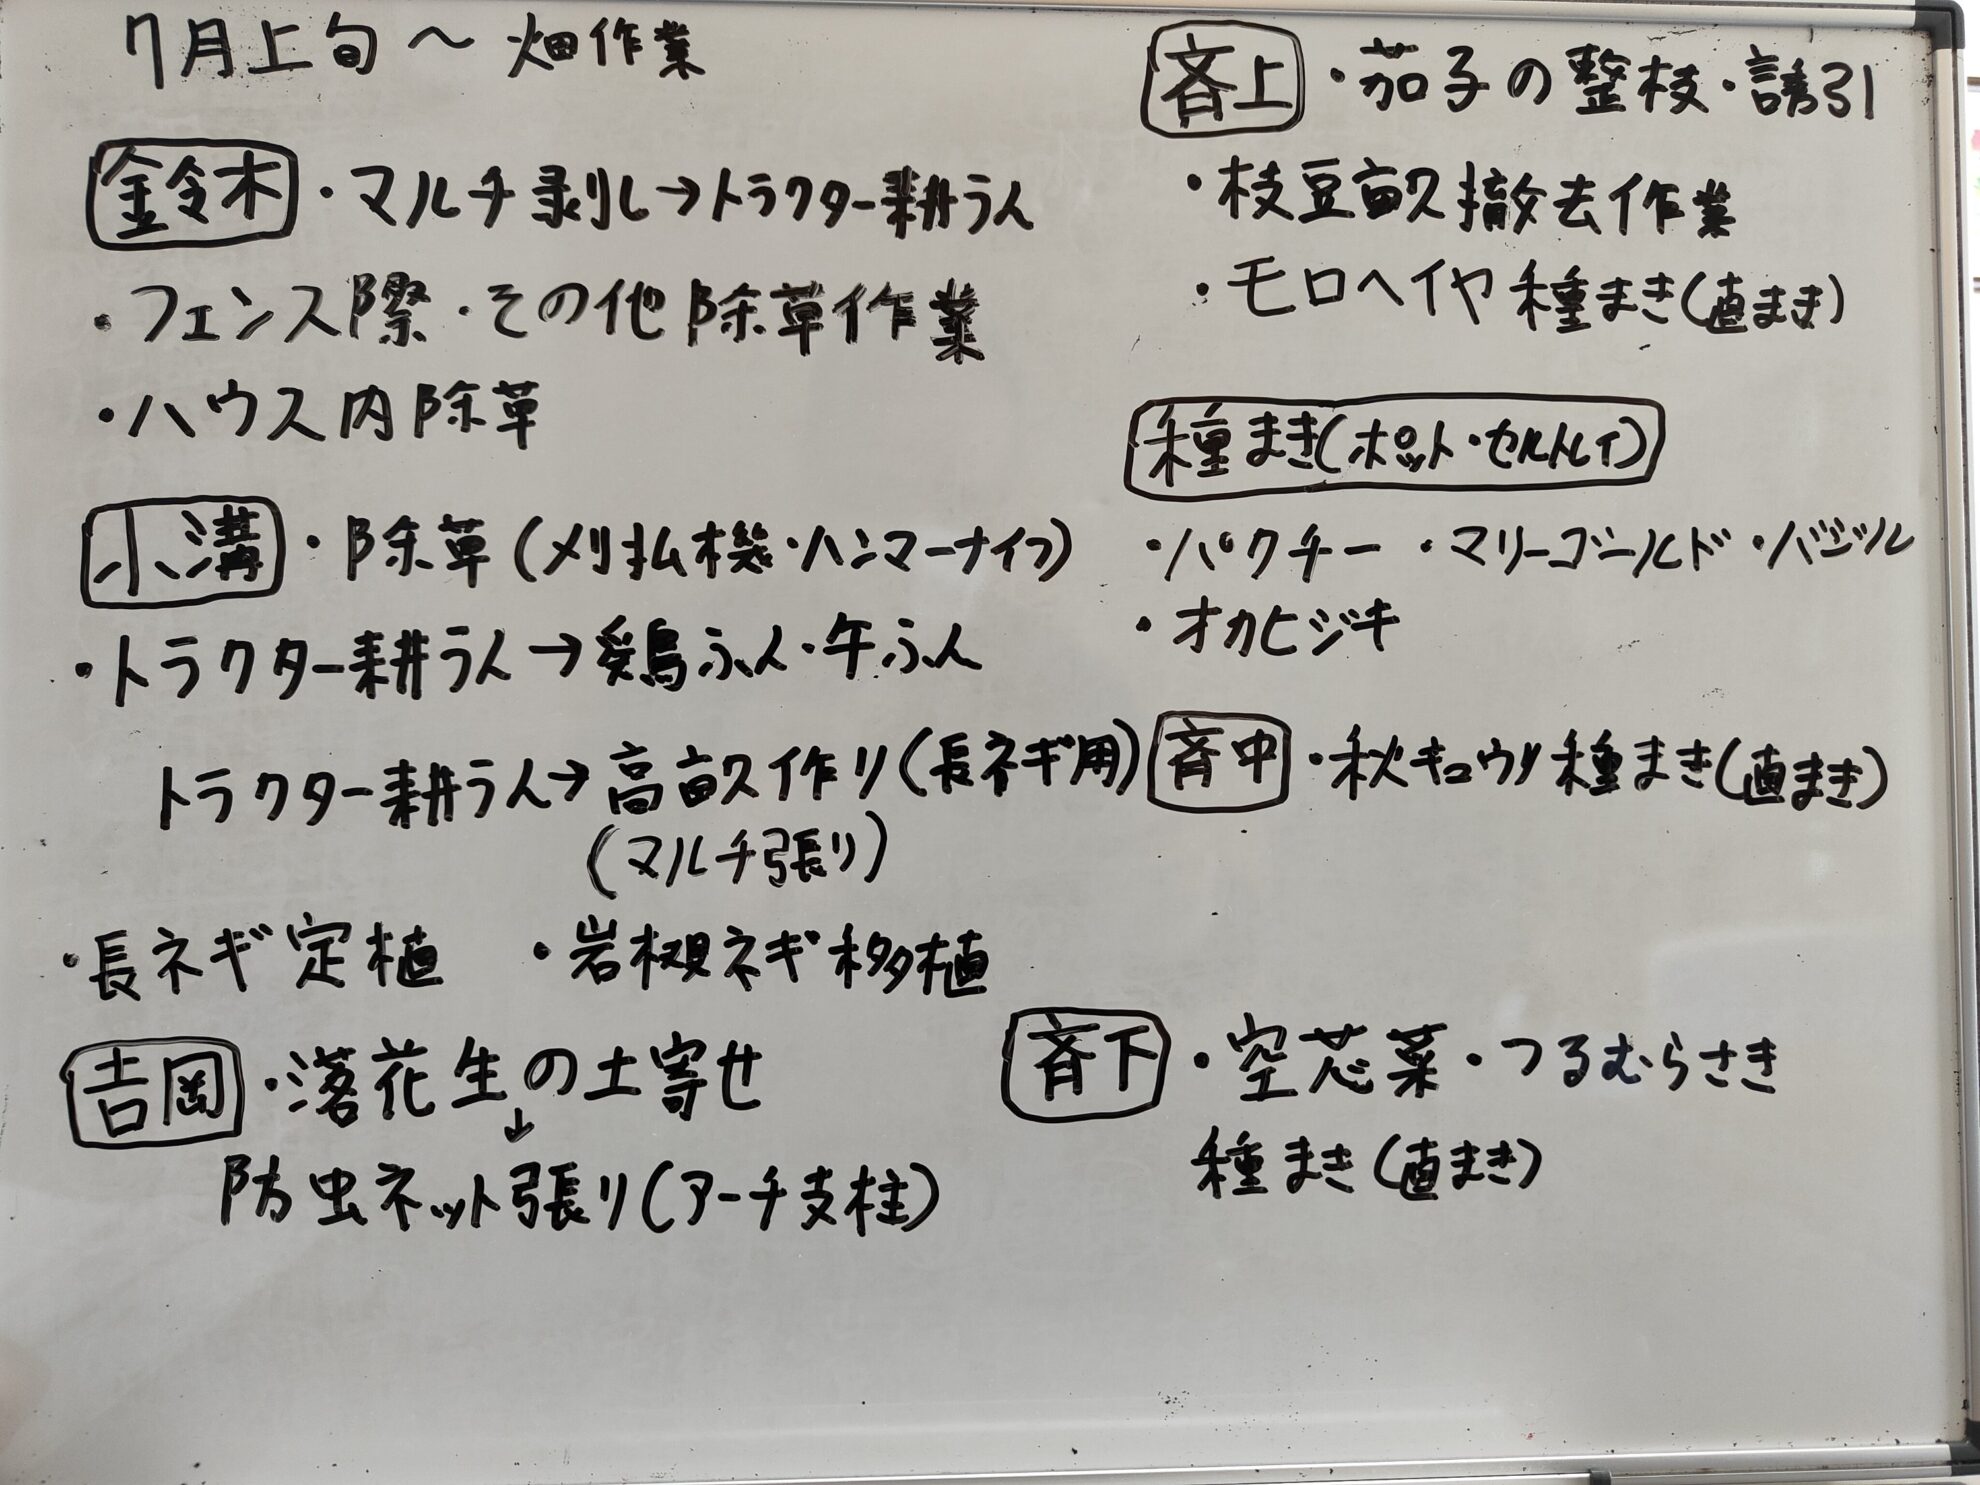 7月上旬～ 畑作業
鈴木 ・マルチ剥し→トラクター耕うん
・フェンス際・その他除草作業
・ハウス内除草
小溝 ・除草(刈払機・ハンマーナイフ)
・トラクター耕うん→鶏ふん・牛ふん
トラクター耕うん→高畝作り(長ネギ用)
(マルチ張り)
・長ネギ定植 ・岩槻ネギ移植
吉岡 ・落花生の土寄せ
↓
防虫ネット張り(アーチ支柱)
斉上 ・茄子の整枝・誘引
・枝豆畝撤去作業
・モロヘイヤ種まき(直まき)
種まき(ポット・セルトレイ)
・パクチー ・マリーゴールド ・バジル
・オカヒジキ
斉中 ・秋キュウリ種まき(直まき)
斉下 ・空芯菜・つるむらさき
種まき(直まき)